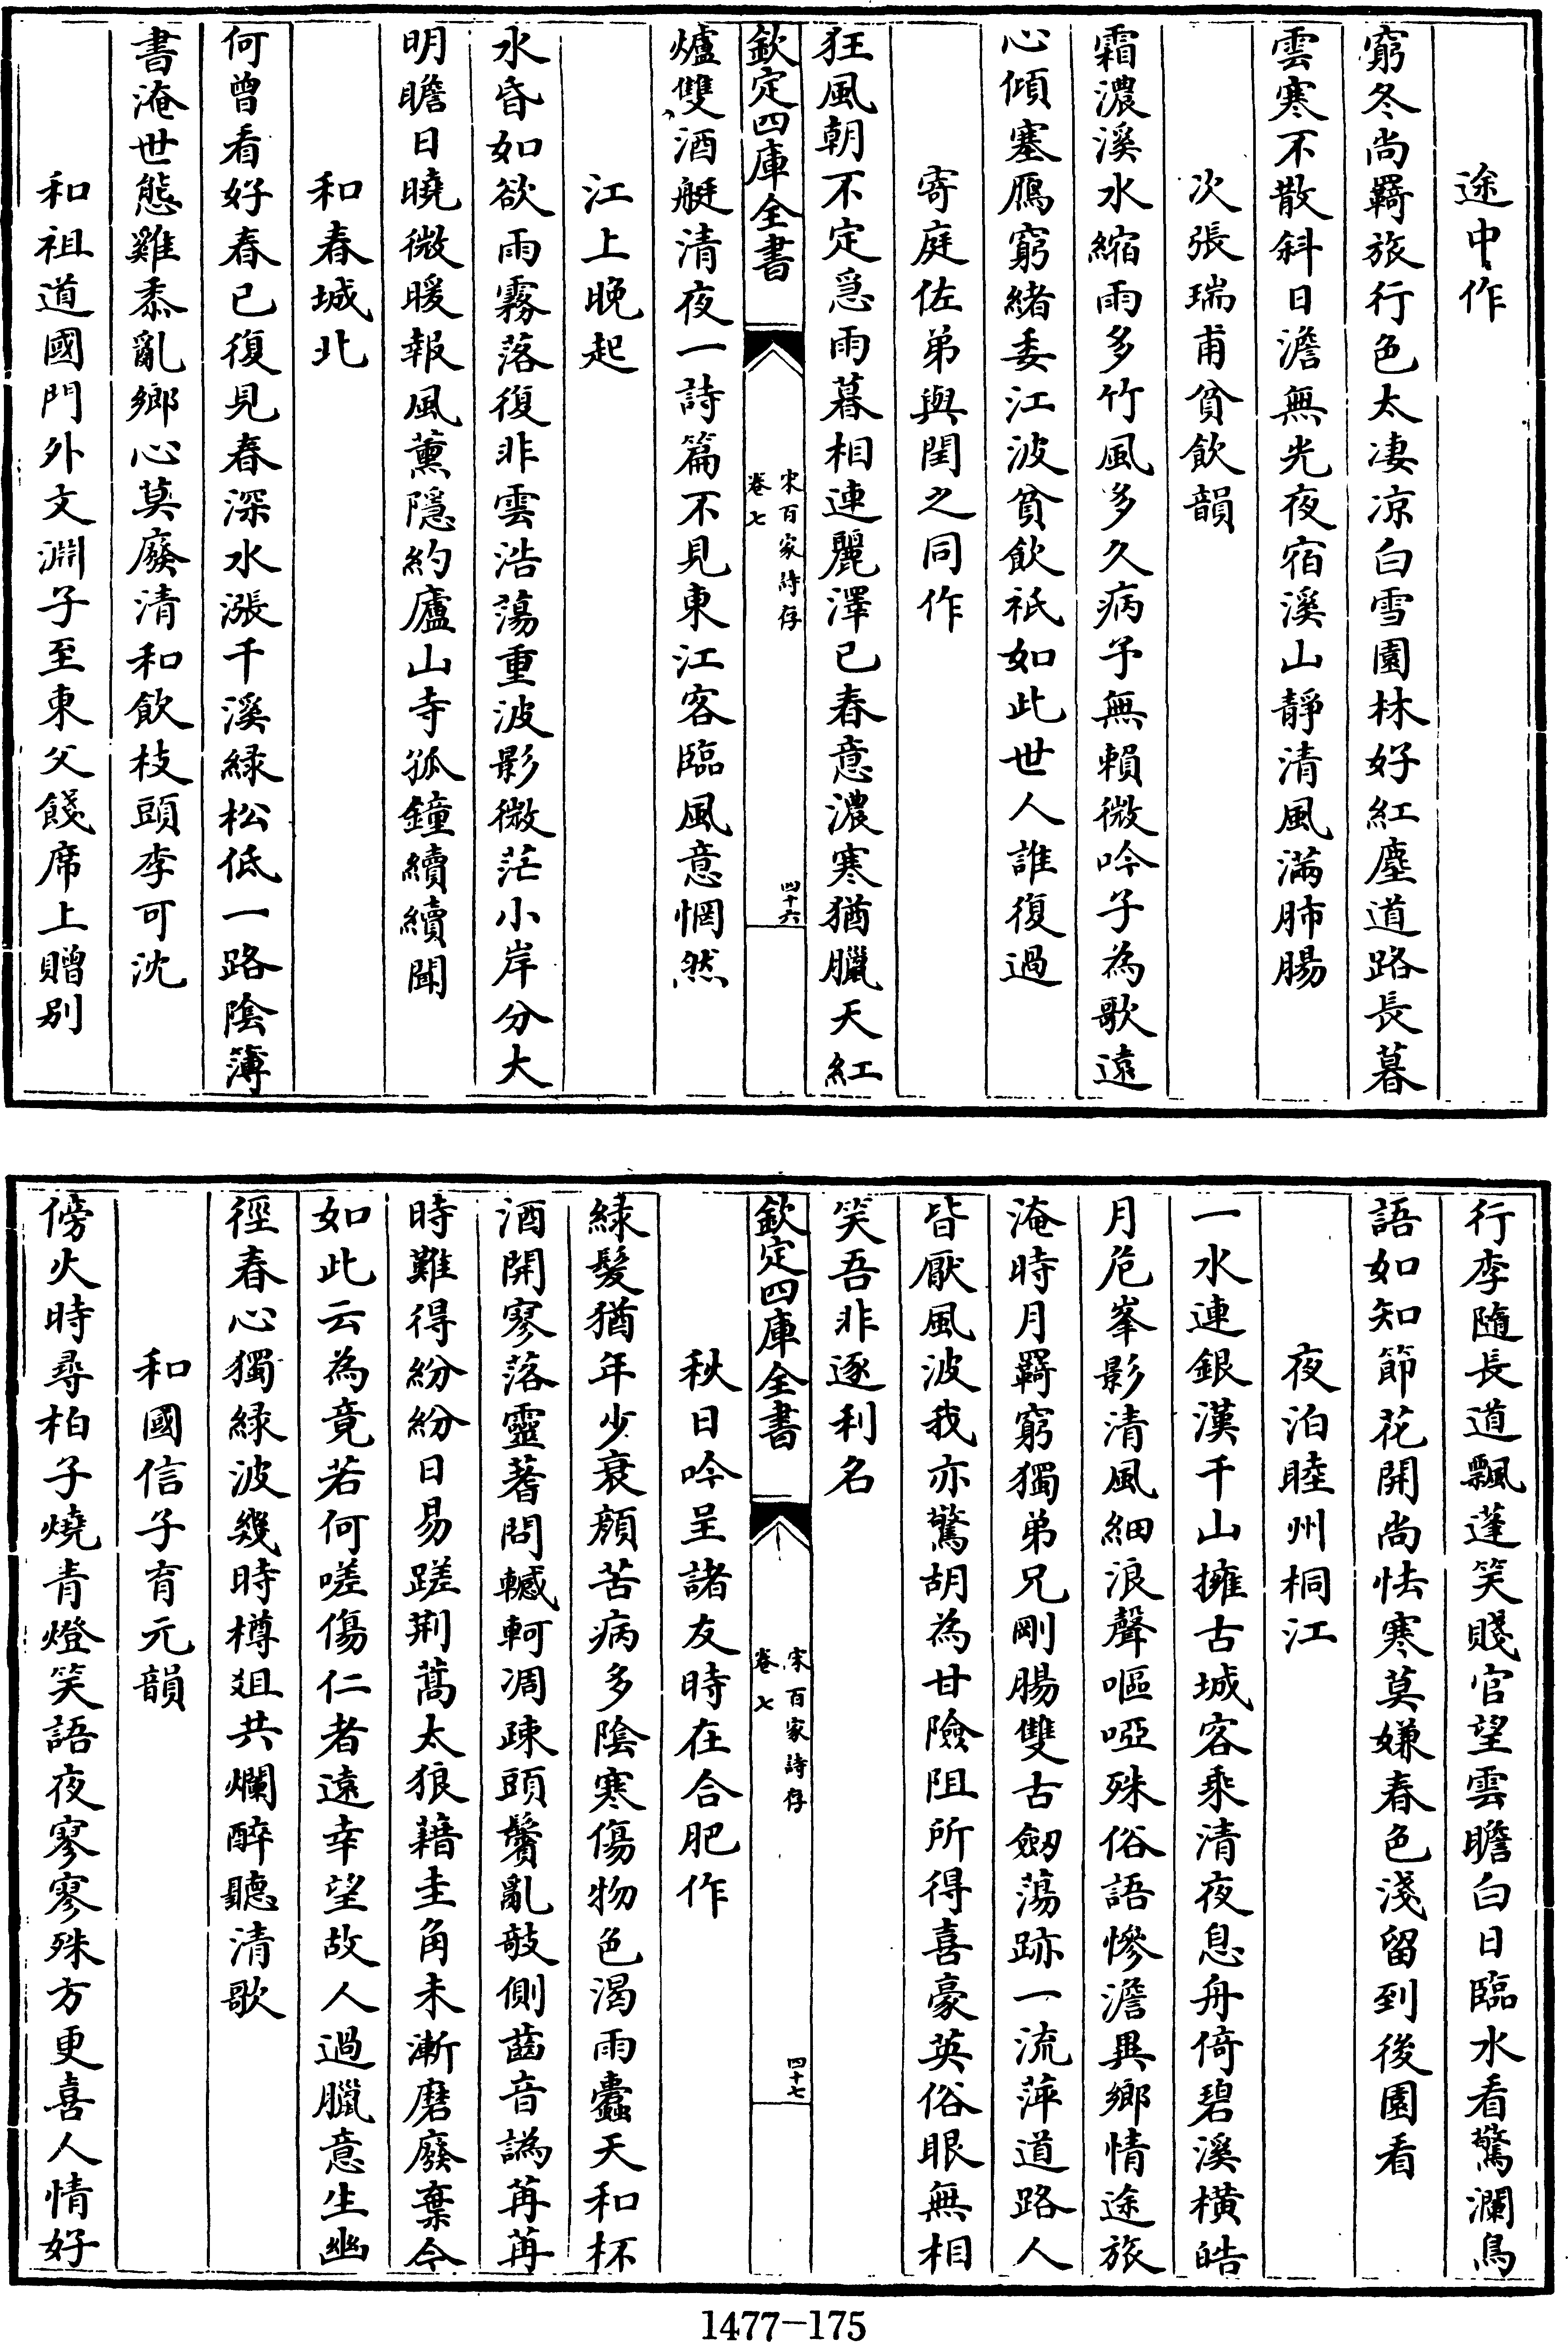 途中作
窮冬尚羇旅行色太凄凉白雪園林好紅塵道路長暮
雲寒不散斜日澹無光夜宿溪山靜清風滿肺腸
次張瑞甫貧飲韻
霜濃溪水縮雨多竹風多久病予無賴微吟子為歌遠
心傾塞鴈窮緒委江波貧飲祇如此世人誰復過
寄庭佐弟與閏之同作
狂風朝不定急雨暮相連麗澤已春意濃寒猶臘天紅
欽定四庫全書
宋百家詩存
卷七
四十六
爐雙酒艇清夜一詩篇不見東江客臨風意惘然
江上晚起
水昏如欲雨霧落復非雲浩蕩重波影微茫小岸分大
明瞻日曉微暖報風薰隱約廬山寺孤鐘續續聞
和春城北
何曾看好春已復見春深水漲千溪綠松低一路陰簿
書淹世態雞黍亂鄉心莫廢清和飲枝頭李可沈
和祖道國門外文淵子至東父餞席上贈別
行李隨長道飄蓬笑賤官望雲瞻白日臨水看驚瀾鳥
語如知節花開尚怯寒莫嫌春色淺留到後園看
夜泊睦州桐江
一水連銀漢千山擁古城客乘清夜息舟倚碧溪橫皓
月危峯影清風細浪聲嘔啞殊俗語慘澹異鄉情途旅
淹時月羇窮獨弟兄剛腸雙古劒蕩跡一流萍道路人
皆厭風波我亦驚胡為甘險阻所得喜豪英俗眼無相
笑吾非逐利名
欽定四庫全書
宋百家詩存
卷七
四十七
秋日吟呈諸友時在合肥作
綠髮猶年少衰顏苦病多陰寒傷物色渴雨蠹天和杯
酒開寥落靈蓍問轗軻凋疎頭鬢亂敧側齒音譌苒苒
時難得紛紛日易蹉荆蒿太狼藉圭角未漸磨廢棄今
如此云為竟若何嗟傷仁者遠幸望故人過臘意生幽
徑春心獨綠波幾時樽俎共爛醉聽清歌
和國信子育元韻
傍火時尋柏子燒青燈笑語夜寥寥殊方更喜人情好
1477-175